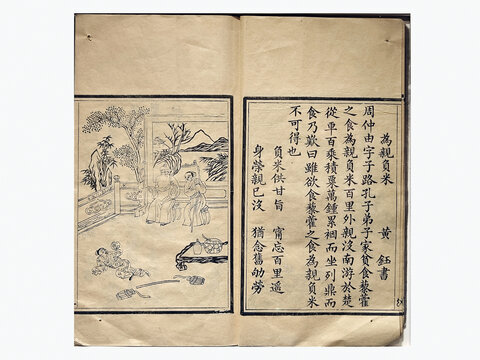 為親負米　黃鈺書
周仲由字子路孔子弟子家貧食藜藿
之食為親負米百里外親沒南游於楚
從車百乘積粟萬鍾累裀而坐列鼎而
食乃歎曰雖欲食藜藿之食為親負米
不可得也
負米供甘旨　甯忘百里遙
身榮親已沒　猶念舊劬勞